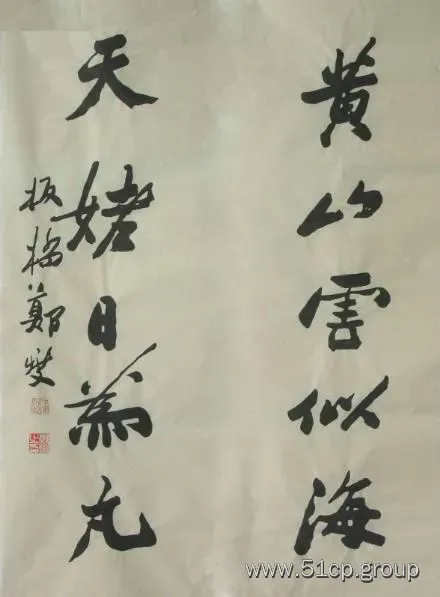 黄山雲似海
天姥日丸
板橋鄭燮
www.51cp.group